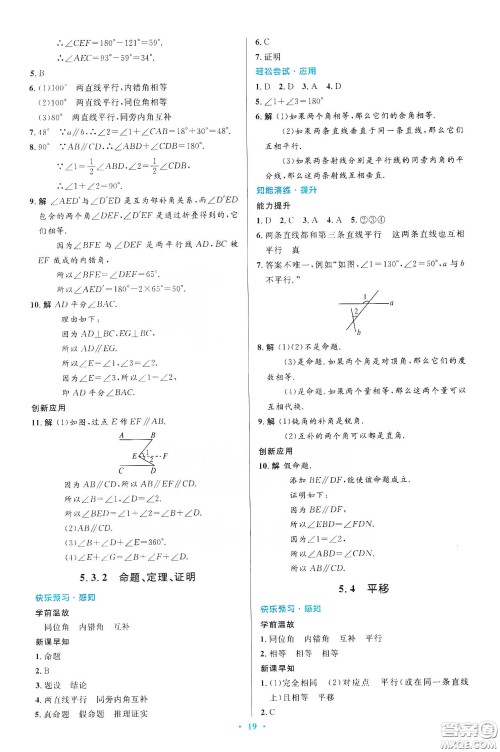 ∴∠CEF=180°-121°=59°.
∴∠AEC=93°-59°=34°.
5. B
6. (1)100°　两直线平行，内错角相等
(2)100°　两直线平行，同位角相等
(3)80°　两直线平行，同旁内角互补
7. 48°　∵a∥b，∴∠2+∠1=180°-30°=48°.
8. 90°　∵AB∥CD，∴∠ABD+∠CDB=180°.
∵∠1=1/2∠ABD，∠2=1/2∠CDB，
∴∠1+∠2=90°.
9. 解 ∠AED'与∠D'EF是互为邻补角关系，而∠D'ED
包含的两个角∠DEF，∠D'EF是通过折叠得到的，它
们相等.
因为∠BFE与∠DEF是两平行线AD，BC被EF
所截成的内错角，
所以∠BFE=∠DEF=65°.
所以∠AED'=180°-2×65°=50°.
10. 解 AD平分∠BAC.
理由如下：
因为AD⊥BC，EG⊥BC，
所以AD∥EG.
所以∠2=∠3，∠1=∠E.
因为∠E=∠3，
所以∠1=∠2，
即AD平分∠BAC.
创新应用
11. 解 (1)如图，过点E作EF∥AB，
A B
E 1 2 F
C D
因为AB∥CD，所以AB∥CD∥EF.
所以∠B=∠1，∠D=∠2.
所以∠BED=∠1+∠2=∠B+∠D.
(2)AB∥CD.
(3)∠B+∠D+∠E=360°.
(4)∠E+∠G=∠B+∠F+∠D.
5.3.2　命题、定理、证明
快乐预习·感知
学前温故
同位角　内错角　互补
新课早知
1. 命题
2. B
3. 题设　结论
4. 两直线平行　同旁内角互补
5. 真命题　假命题　推理证实
6. C
7. 证明
轻松尝试·应用
1. D　2. D　3. A　4. D
5. ∠1+∠3=180°
6. 解 (1)如果两个角相等，那么它们的余角相等.
(2)如果两条直线垂直于同一条直线，那么它们
互相平行.
(3)如果两条射线分别是两平行线的同旁内角的
平分线，那么这两条射线互相垂直.
知能演练·提升
能力提升
1. D　2. A　3. A　4. A　5. ②③④
6. 两条直线都和第三条直线平行　这两条直线也互相
平行　真
7. 答案不唯一，例如“如图，∠1=130°，∠2=50°，a与b
不平行.”
1 a
2
b
8. 解 (1)(2)不是命题.
(3)是命题.如果两个角为对顶角，那么它们的度数
相等.(4)是命题.如果两个量相等，那么它们可以
互相代换.
9. 解 (1)钝角的补角是锐角.
(2)互补的两个角可以都是直角.
创新应用
10. 解 假命题.
添加BE∥DF，能使该命题成立.
证明如下：
因为BE∥DF，
所以∠EBD=∠FDN.
因为∠1=∠2，
所以∠ABD=∠CDN.
所以AB∥CD.
5.4　平移
快乐预习·感知
学前温故
1. 同位角　内错角　互补　平行
2. 相等　相等　相等
新课早知
1. (1)完全相同　(2)对应点　平行（或在同一条直线
上）且相等　平移
2. C
· 19 ·